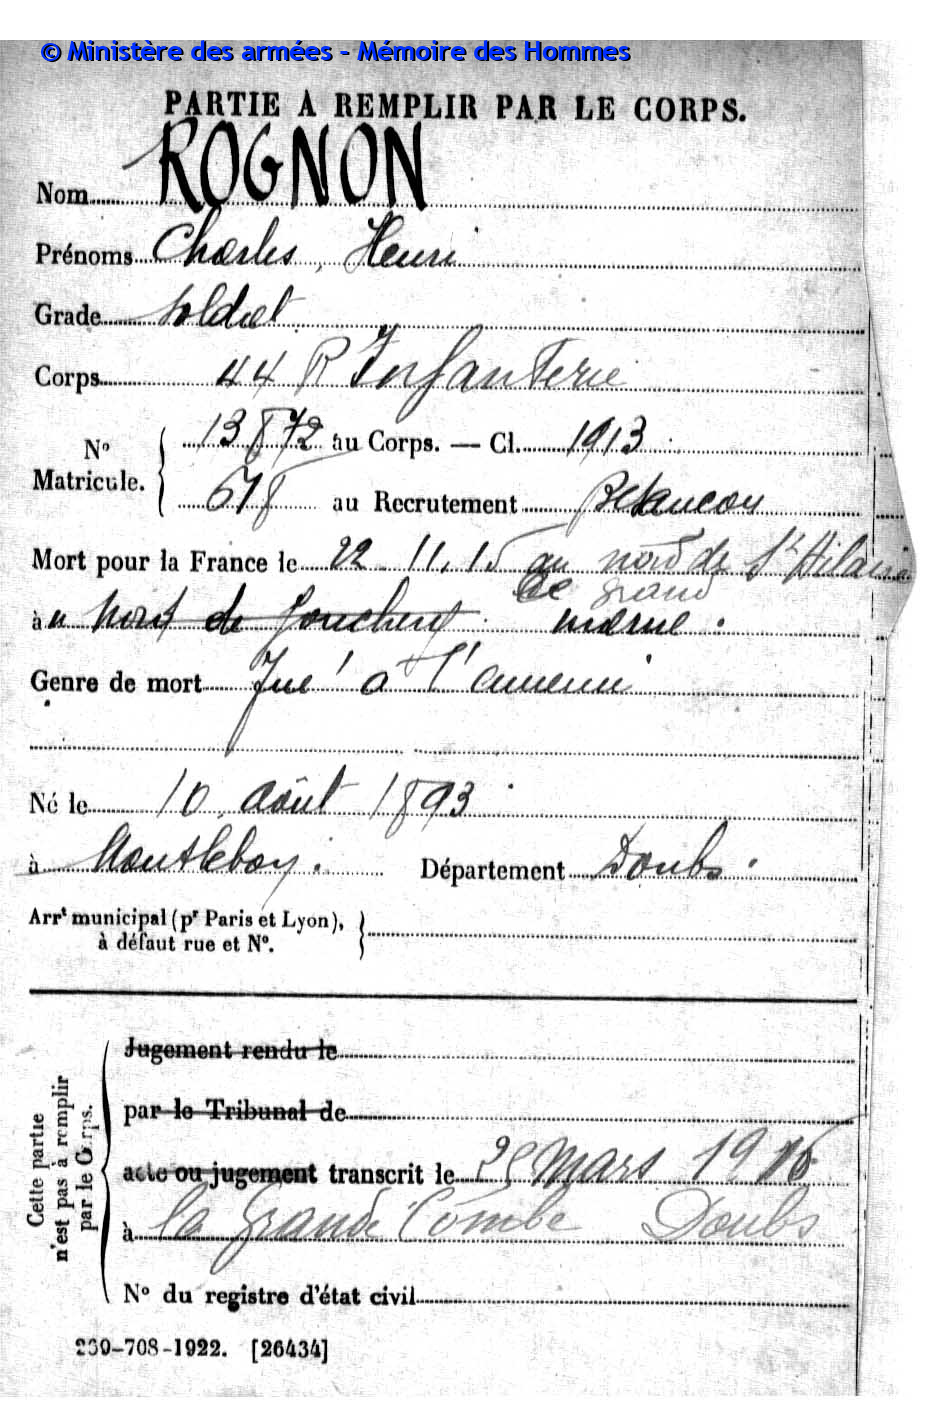 © Ministère des armées - Mémoire des Hommes
PARTIE A REMPLIR PAR LE CORPS.
Nom ROGNON
Prénoms Charles, Henri
Grade Soldat
Corps 44 R Infanterie
N° Matricule.
13872 au Corps. — Cl. 1913
678 au Recrutement Besançon
Mort pour la France le 22.11.15 au nord de St Hilaire
le grand
à u Nord de Jonchery. marne.
Genre de mort Tué à l'ennemi
Né le 10 Août 1893
à Montlebon. Département Doubs.
Arrt municipal (pr Paris et Lyon),
à défaut rue et N°.
Cette partie
n'est pas à remplir
par le Corps.
Jugement rendu le
par le Tribunal de
acte ou jugement transcrit le 25 Mars 1916
à la Grande Combe Doubs
N° du registre d'état civil
260-708-1922. [26434]